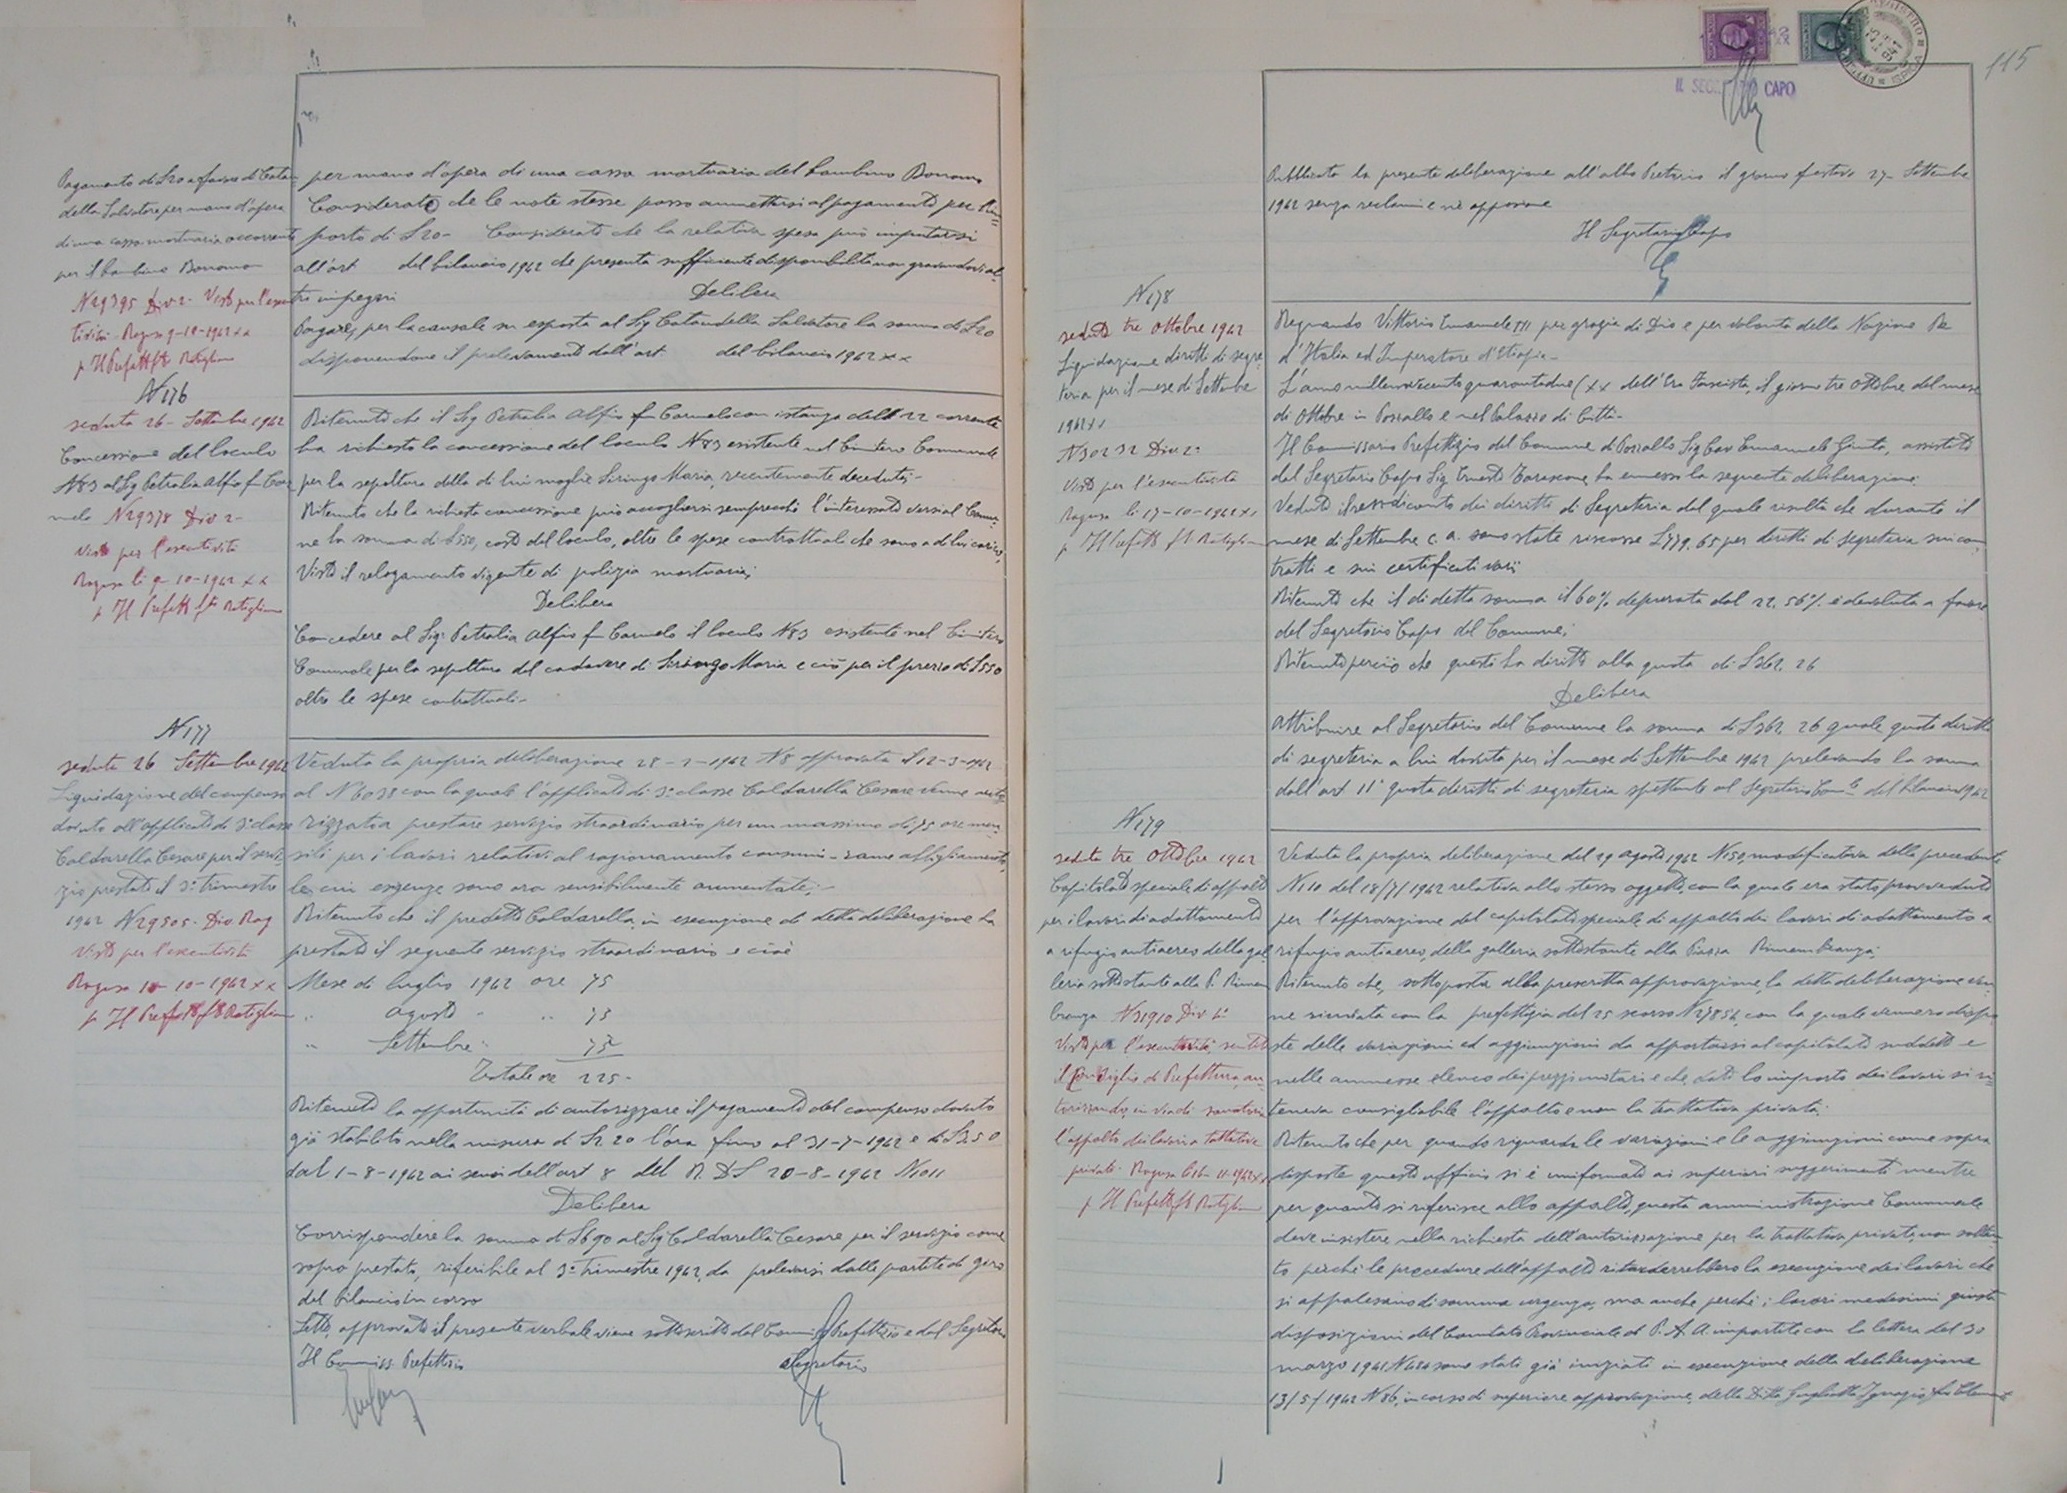 Pagamento di L 20 a favore di Catau=
della Salvatore per mano d'opera
di una cassa mortuaria occorrente
per il bambino Bonomo
N 29395 Div 2- Visto per l'esecu
tività. Ragusa 9-10-1942 xx
p Il Prefetto fto Ratiglia
per mano d'opera di una cassa mortuaria del bambino Bonomo
Considerato che le note stesse posso ammettersi al pagamento per l'im=
porto di L 20- Considerato che la relativa spesa può imputarsi
all'art del bilancio 1942 che presenta sufficiente disponibilità non gravandovi al
tri impegni
Delibera
Pagare, per la causale su esposta al Sig Cataudella Salvatore la somma di L 20
disponendone il prelevamento dall'art. del bilancio 1942 xx
N 176
seduta 26 - Settembre 1942
Concessione del loculo
N 83 al Sig Petralia Alfio fu Car
melo N 29378 Div 2-
visto per l'esecutività
Ragusa li 9 10-1942 xx
p Il Prefetto fto Ratiglia
Ritenuto che il Sig Petralia Alfio fu Carmelo con istanza dell 22 corrente
ha richiesto la concessione del loculo N 83 esistente nel Cimitero Comunale
per la sepoltura della di lui moglie Siringo Maria, recentemente deceduta;-
Ritenuto che la richiesta concessione può accogliersi sempreché l'interessato versi al Comu-
ne la somma di L 550, costo del loculo, oltre le spese contrattuali che sono a di lui carico;
Visto il relogamento vigente di polizia mortuaria;
Delibera
Concedere al Sig. Petralia Alfio fu Carmelo il loculo N 83 esistente nel Cimitero
Comunale per la sepoltura del cadavere di Siringo Maria e ciò per il prezzo di L 550
oltre le spese contrattuali.-
N 177
seduta 26 Settembre 1942
Liquidazione del compenso
dovuto all'applicato di 3a classe
Caldarella Cesare per il servi-
zio prestato il 3° trimestre
1942 N 29505. Div. Rag
Visto per l'esecutività
Ragusa 10-10-1942 xx
p Il Prefetto fto Ratiglia
Veduta la propria deliberazione 28-2-1942 N 8 approvata il 12-3-942
al N 6038 con la quale l'applicato di 3a classe Caldarella Cesare venne auto
rizzato a prestare servizio straordinario per un massimo di 75 ore men
sili per i lavori relativi al ragionamento consumi - rame abbigliamento,
le cui esigenze sono ora sensibilmente aumentate;-
Ritenuto che il predetto Caldarella, in esecuzione di detta deliberazione ha
prestato il seguente servizio straordinario e cioè
Mese di luglio 1942 ore 75
" agosto - " 75
" Settembre " 75
Totale ore 225-
Ritenuta la opportunità di autorizzare il pagamento del compenso dovuto
già stabilito nella misura di L 2.20 l'ora fino al 31-7-1942 e di L 3.50
dal 1-8-1942 ai sensi dell'art 8 del R. D L 20-8-1942 N 1011
Delibera
Corrispondere la somma di L 690 al Sig Caldarella Cesare per il servizio come
sopra prestato, riferibile al 3° trimestre 1942, da prelevarsi dalle partite di giro
del bilancio in corso
Letto, approvato il presente verbale viene sottoscritto dal Commis Prefettizio e dal Segretario
Il Commiss Prefettizio Segretario
115
IL SEGRETARIO CAPO
Pubblicata la presente deliberazione all'albo Pretorio il giorno festivo 27- Settembre
1942 senza reclami e nè opposizione
Il Segretario Capo
N 178
seduta tre Ottobre 1942
Liquidazione diritti di segre
teria per il mese di Settembre
1942 xx
N 30232 Div 2a
Visto per l'esecutività
Ragusa li 17-10-1942 xx
p Il Prefetto fto Ratiglia
Regnando Vittorio Emanuele III per grazia di Dio e per volontà della Nazione Re
d'Italia ed Imperatore d'Etiopia.-
L'anno millenovecentoquarantadue (xx dell'Era Fascista, il giorno tre Ottobre del mese
di Ottobre in Pozzallo e nel Palazzo di Città.-
Il Commissario Prefettizio del Comune di Pozzallo Sig Cav Emanuele Giunta, assistito
dal Segretario Capo Sig Ernesto Tarascone, ha emesso la seguente deliberazione:
Veduto il rendiconto dei diritti di Segreteria dal quale risulta che durante il
mese di Settembre c. a. sono state riscosse L 779.65 per diritti di segreteria sui con
tratti e sui certificati varii
Ritenuto che il di detta somma il 60% depurata dal 22.56% è devoluta a favore
del Segretario Capo del Comune;
Ritenuto perciò che questi ha diritto alla quota di L 362.26
Delibera
Attribuire al Segretario del Comune la somma di L 362.26 quale quota diritti
di segreteria a lui dovuta per il mese di Settembre 1942 prelevando la somma
dall'art 11° quota diritti di segreteria spettante al Segretario Com.le del bilancio 1942
N 179
seduta tre Ottobre 1942
Capitolato speciale di appalto
per i lavori di adattamento
a rifugio antiaereo della gal
leria sottostante alla P. Rimem
branza N 31910 Div 4a
Visto per l'esecutività, sentito
il Consiglio di Prefettura, au
torizzando, in via di sanatoria
l'appalto dei lavori a trattativa
privata. Ragusa li 16-11-1942 xx
p Il Prefetto fto Ratiglia
Veduta la propria deliberazione del 29 agosto 1942 N 150, modificativa della precedente
N 110 del 18/7/1942 relativa allo stesso oggetto, con la quale era stato provveduto
per l'approvazione del capitolato speciale di appalto dei lavori di adattamento a
rifugio antiaereo, della galleria sottostante alla Piazza Rimembranza;
Ritenuto che, sottoposta alla prescritta approvazione, la detta deliberazione ven-
ne rinviata con la prefettizia del 25 scorso N 27856, con la quale vennero dispo-
ste delle variazioni ed aggiunzioni da apportarsi al capitolato suddetto e
nelle ammesse elenco dei prezzi unitari e che, dato lo importo dei lavori si ri-
teneva consigliabile l'appalto e non la trattativa privata;
Ritenuto che per quando riguarda le variazioni e le aggiunzioni come sopra
disposte questo ufficio si è uniformato ai superiori suggerimenti mentre
per quanto si riferisce allo appalto, questa amministrazione Comunale
deve insistere nella richiesta dell'autorizzazione per la trattativa privata, non soltan
to perché le procedure dell'appalto ritarderebbero la esecuzione dei lavori che
si appalesano di somma urgenza, ma anche perché i lavori medesimi giusta
disposizioni del Comitato Provinciale di P. A. A. impartite con la lettera del 30
marzo 1942 sono stati già iniziati in esecuzione della deliberazione
13/5/1942 N 86, in corso di superiore approvazione, della Ditta Gugliotta Ignazio fu